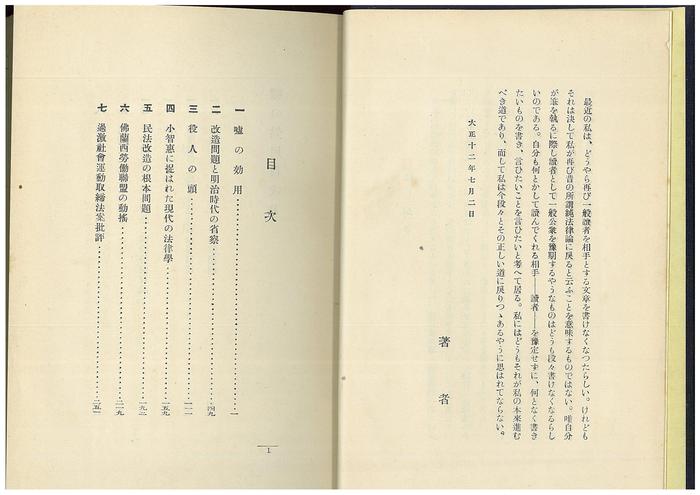 最近の私は、どうやら再び一般讀者を相手とする文章を書けなくなつたらしい。けれども
それは決して私が再び昔の所謂純法律論に戻ると云ふことを意味するものではない。唯自分
が筆を執るに際し讀者として一般公衆を豫期するやうなものはどうも段々書けなくなるらし
いのである。自分も何とかして讀んでくれる相手——讀者——を豫定せずに、何となく書き
たいものを書き、言ひたいことを言ひたいと考へて居る。私にはどうもそれが私の本來進む
べき道であり、而して私は今段々とその正しい道に戻りつゝあるやうに思はれてならない。
大正十二年七月二日
著者
目次
一 嘘の効用…………一
二 改造問題と明治時代の省察…………四九
三 役人の頭…………一一一
四 小智惠に捉はれた現代の法律學…………一五九
五 民法改造の根本問題…………一九三
六 佛蘭西勞働聯盟の動搖…………二一九
七 過激社會運動取締法案批評…………二五一
1